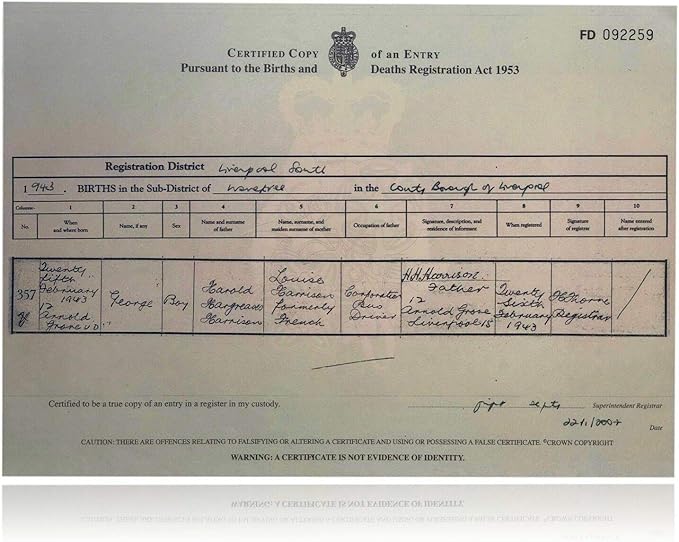 FD 092259
CERTIFIED COPY of an ENTRY
Pursuant to the Births and Deaths Registration Act 1953
Registration District Liverpool South
1943. BIRTHS in the Sub-District of Wavertree in the County Borough of Liverpool
Columns:- 1 2 3 4 5 6 7 8 9 10
No. When and where born Name, if any Sex Name and surname of father Name, surname, and maiden surname of mother Occupation of father Signature, description, and residence of informant When registered Signature of registrar Name entered after registration
357
Twenty
Fifth
February
1943
12
Arnold
Grove U.D.
George
Boy
Harold
Hargreaves
Harrison
Louise
Harrison
formerly
French
Corporation
Bus
Driver
H.H. Harrison
Father
12
Arnold Grove
Liverpool 15
Twenty
Sixth
February
1943
Registrar
Certified to be a true copy of an entry in a register in my custody.
Superintendent Registrar
Date
CAUTION: THERE ARE OFFENCES RELATING TO FALSIFYING OR ALTERING A CERTIFICATE AND USING OR POSSESSING A FALSE CERTIFICATE. ©CROWN COPYRIGHT
WARNING: A CERTIFICATE IS NOT EVIDENCE OF IDENTITY.